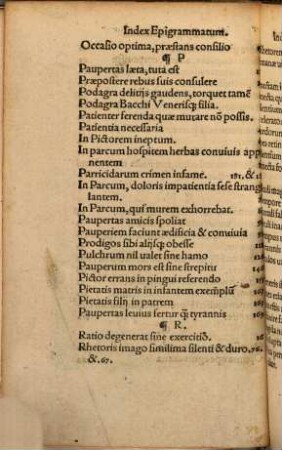 Index Epigrammatum.
Occasio optima, præstans consilio
¶ P
Paupertas læta, tuta est
Præpostere rebus suis consulere
Podagra delitijs gaudens, torquet tamẽ
Podagra Bacchi Venerisq; filia.
Patienter ferenda quæ mutare nõ possis.
Patientia necessaria
In Pictorem ineptum.
In parcum hospitem herbas conuiuis app
nentem
Parricidarum crimen infame. 191. &
In Parcum, doloris impatientia sese strang
lantem.
In Parcum, qui murem exhorrebat.
Paupertas amicis spoliat
Pauperiem faciunt ædificia & conuiuia
Prodigos sibi alijsq; obesse
Pulchrum nil ualet sine hamo
Pauperum mors est sine strepitu
Pictor errans in pingui referendo
Pietatis matris in infantem exemplũ
Pietatis filij in patrem
Paupertas leuius fertur q̃ tyrannis
¶ R.
Ratio degenerat sine exercitiõ.
Rhetoris imago simillima silenti & duro.
& .67.